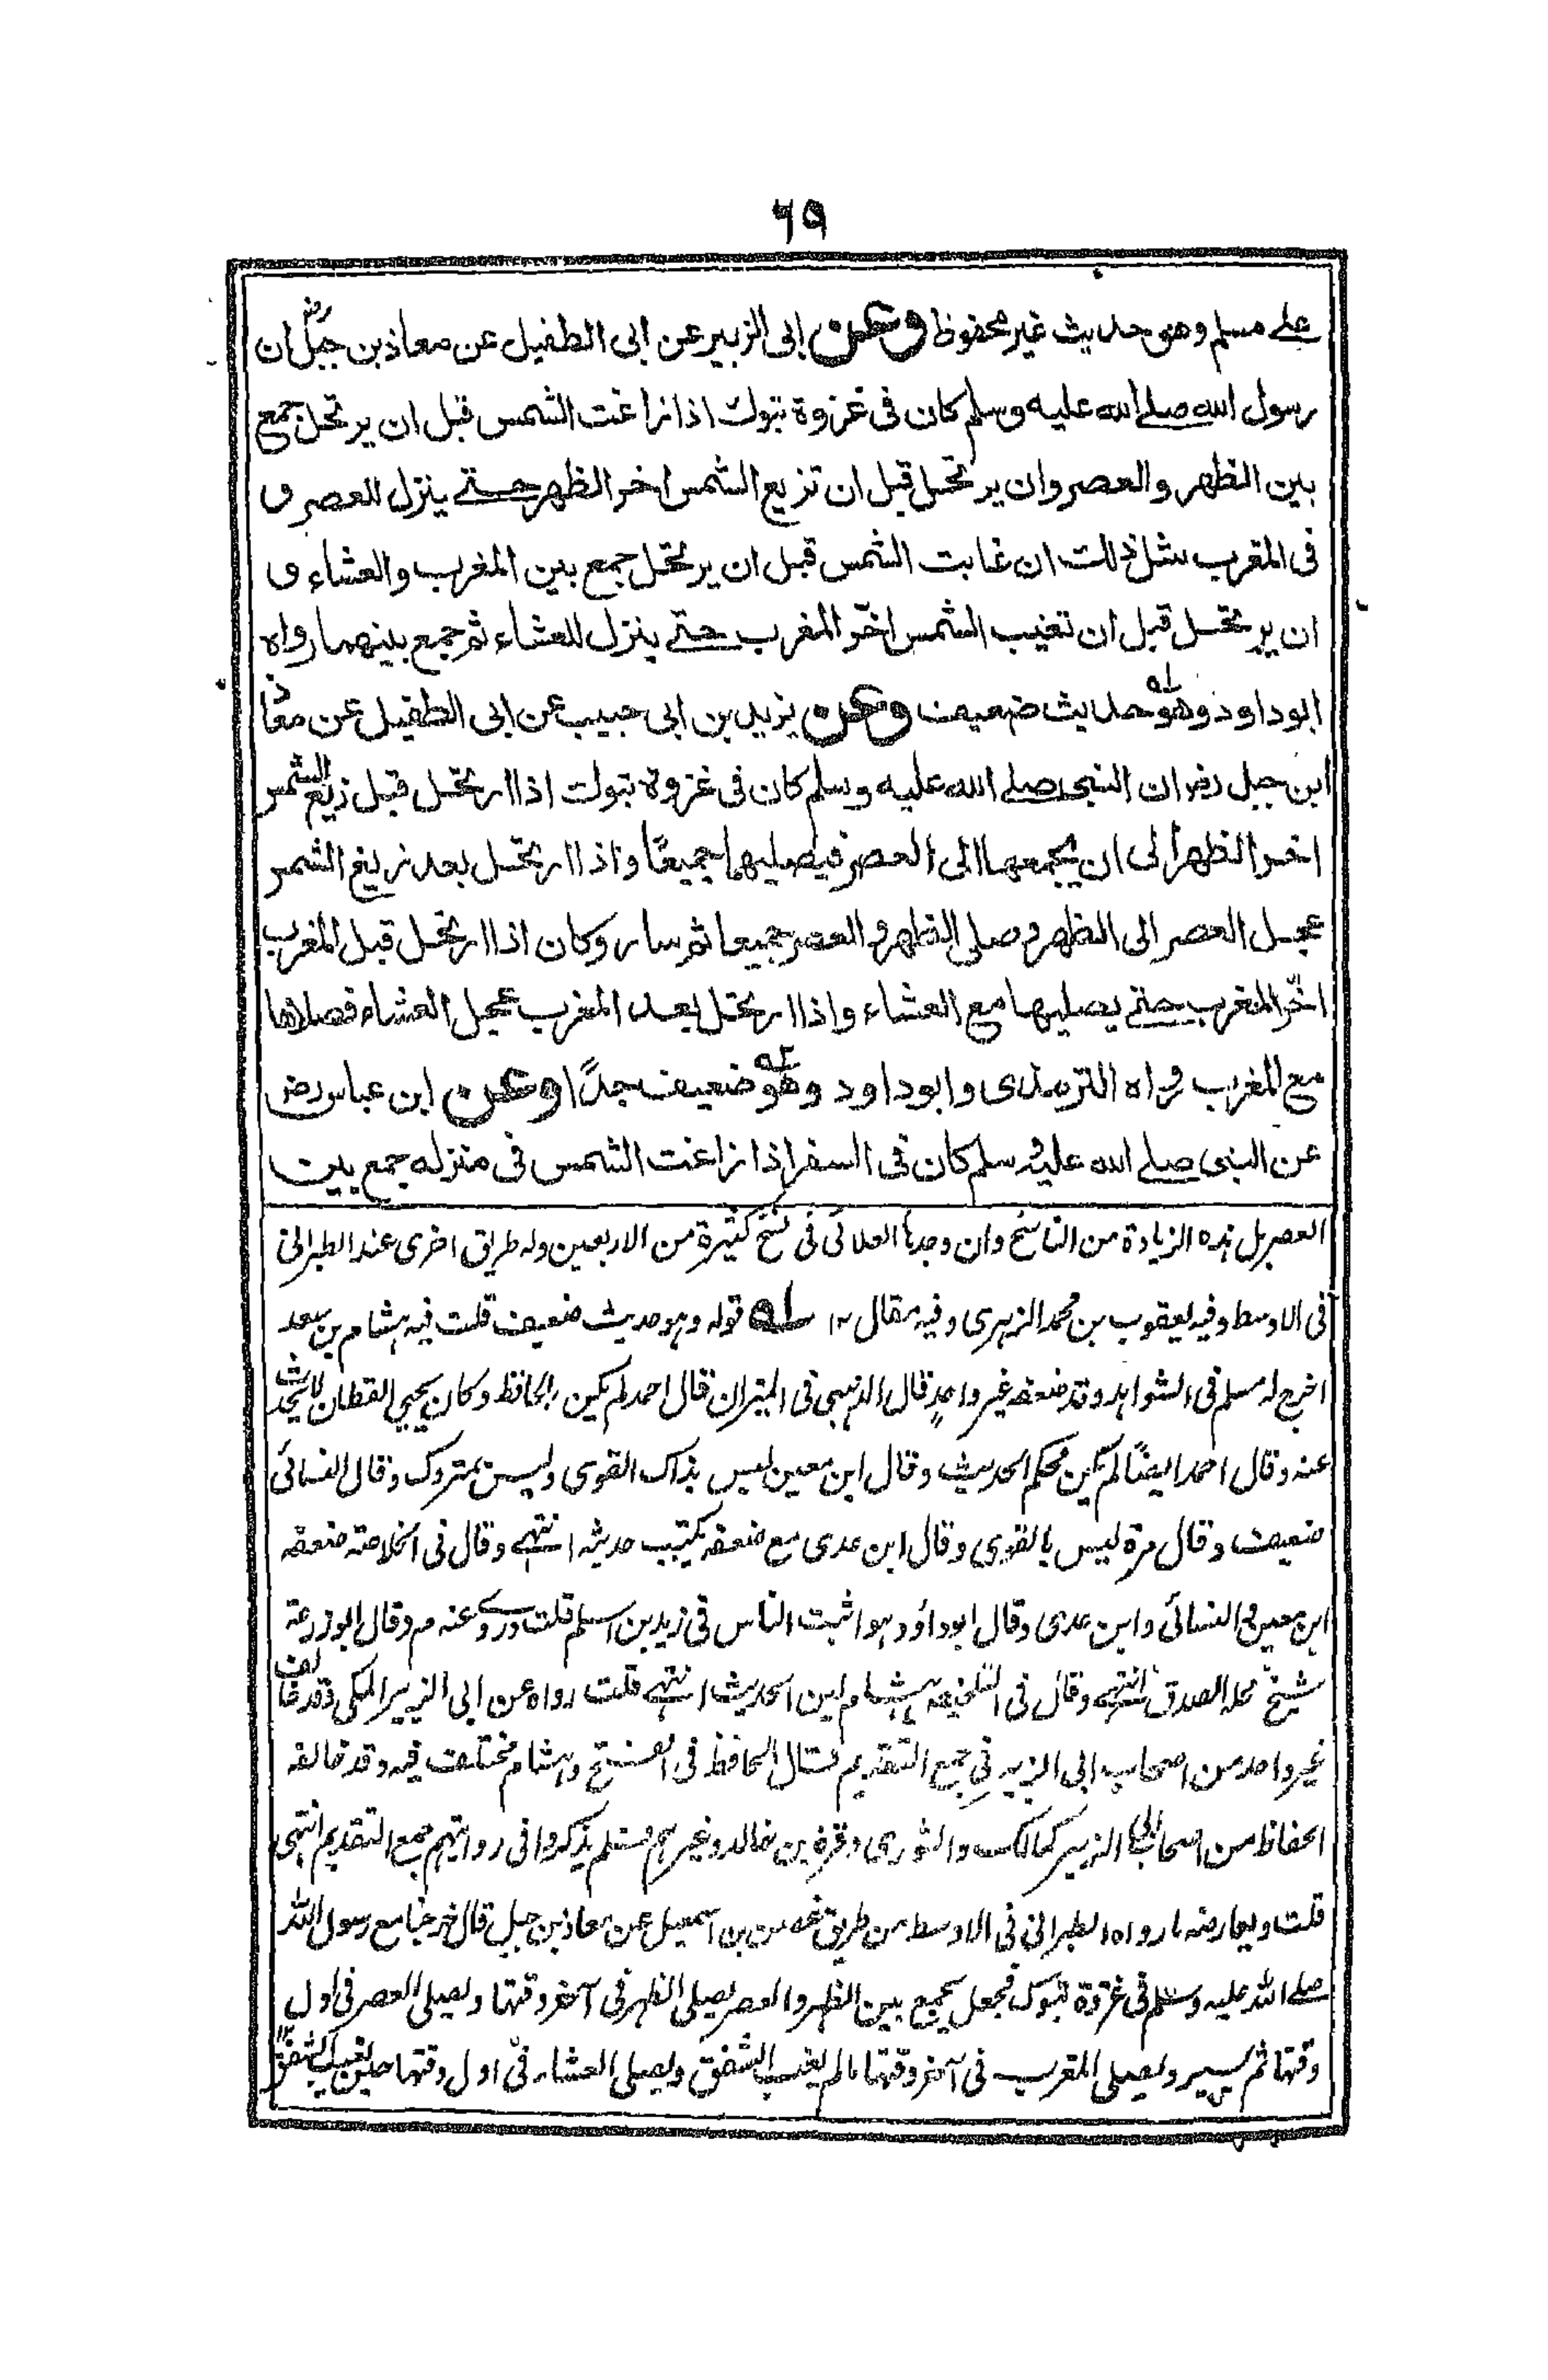 ٦٥
على مسلم وهو حديث غير محفوظ وعن ابى الزبير عن ابى الطفيل عن معاذ بن جبل رض ان
رسول الله صلى الله عليه وسلم كان فى غزوة تبوك اذا زاغت الشمس قبل ان يرتحل جمع
بين الظهر والعصر وان يرتحل قبل ان تزيع الشمس اخر الظهر حتى ينزل للعصر و
فى المغرب مثل ذلك ان غابت الشمس قبل ان يرتحل جمع بين المغرب والعشاء و
ان يرتحل قبل ان تغيب الشمس اخّر المغرب حتى ينزل للعشاء ثم جمع بينهما رواه
ابو داود وهو له حديث ضعيف وعن يزيد بن ابى حبيب عن ابى الطفيل عن معاذ
ابن جبل رض ان النبى صلى الله عليه وسلم كان فى غزوة تبوك اذا ارتحل قبل زيغ الشمس
اخر الظهر الى ان يجمعها الى العصر فيصليهما جميعًا واذا ارتحل بعد زيغ الشمس
عجل العصر الى الظهر وصلى الظهر والعصر جميعا ثم سار وكان اذا ارتحل قبل المغرب
اخّر المغرب حتى يصليها مع العشاء واذا ارتحل بعد المغرب عجل العشاء فصلاها
مع المغرب رواه الترمذى وابو داود وهو ضعيف جدًا وعن ابن عباس رض
عن النبى صلى الله عليه وسلم كان فى السفر اذا زاغت الشمس فى منزله جمع بين
العصر بل هذه الزيادة من الناسخ وان وجدها العلائى فى نسخ كثيرة من الاربعين وله طريق اخرى عند الطبرانى
فى الاوسط وفيه يعقوب بن محمد الزهرى وفيه مقال ١٢ له قوله وهو حديث ضعيف قلت فيه هشام بن سعد
اخرج له مسلم فى الشواهد وقد ضعفه غير واحدٍ قال الذهبى فى الميزان قال احمد لم يكن بالحافظ وكان يحيى القطان لا يحدث
عنه وقال احمد ايضًا لم يكن محكم الحديث وقال ابن معين ليس بذاك القوى وليس بمتروك وقال النسائى
ضعيف وقال مرة ليس بالقوى وقال ابن عدى مع ضعفه يكتب حديثه انتهى وقال فى الخلاصة ضعفه
ابن معين والنسائى وابن عدى وقال ابو داؤد هو اثبت الناس فى زيد بن اسلم قلت وروى عنه م وقال ابو زرعة
شيخ محله الصدق انتهى وقال فى التلخيص هشام لين الحديث انتهى قلت رواه عن ابى الزبير المكى وقد خالف
غير واحد من اصحاب ابى الزبير فى جمع التقديم قال الحافظ فى الفتح وهشام مختلف فيه وقد خالفه
الحفاظ من اصحاب ابى الزبير كمالك والثورى وقرة بن خالد وغيرهم فلم يذكروا فى روايتهم جمع التقديم انتهى
قلت ويعارضه ما رواه الطبرانى فى الاوسط من طريق بن اسمعيل عن معاذ بن جبل قال خرجنا مع رسول الله
صلى الله عليه وسلم فى غزوة تبوك فجعل يجمع بين الظهر والعصر يصلى الظهر فى آخر وقتها ويصلى العصر فى اول
وقتها ثم يسير ويصلى المغرب فى آخر وقتها ما لم يغب الشفق ويصلى العشاء فى اول وقتها حين يغيب الشفق